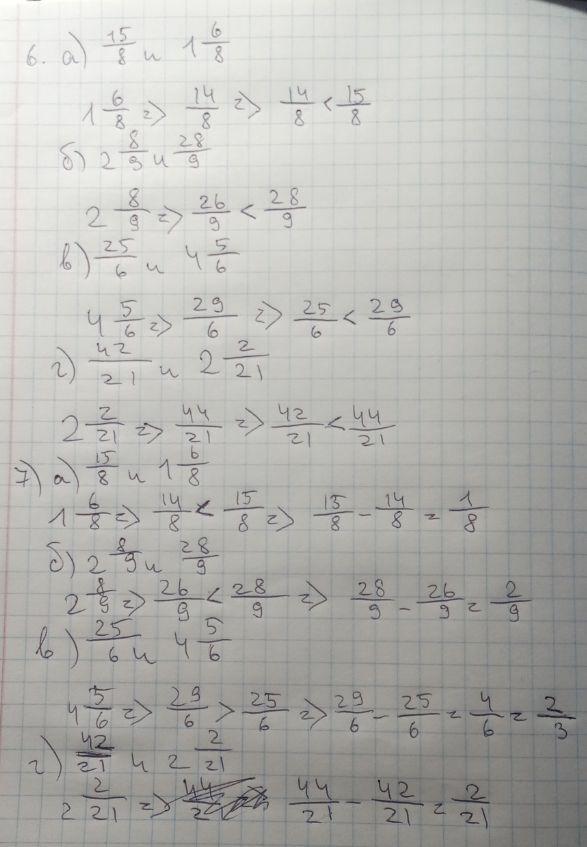 6. а) 15/8 и 1 6/8
1 6/8 => 14/8 => 14/8 < 15/8
б) 2 8/9 и 28/9
2 8/9 => 26/9 < 28/9
в) 25/6 и 4 5/6
4 5/6 => 29/6 => 25/6 < 29/6
г) 42/21 и 2 2/21
2 2/21 => 44/21 => 42/21 < 44/21
7) а) 15/8 и 1 6/8
1 6/8 => 14/8 < 15/8 => 15/8 - 14/8 = 1/8
б) 2 8/9 и 28/9
2 8/9 => 26/9 < 28/9 => 28/9 - 26/9 = 2/9
в) 25/6 и 4 5/6
4 5/6 => 29/6 > 25/6 => 29/6 - 25/6 = 4/6 = 2/3
г) 42/21 и 2 2/21
2 2/21 => 44/21 - 42/21 = 2/21